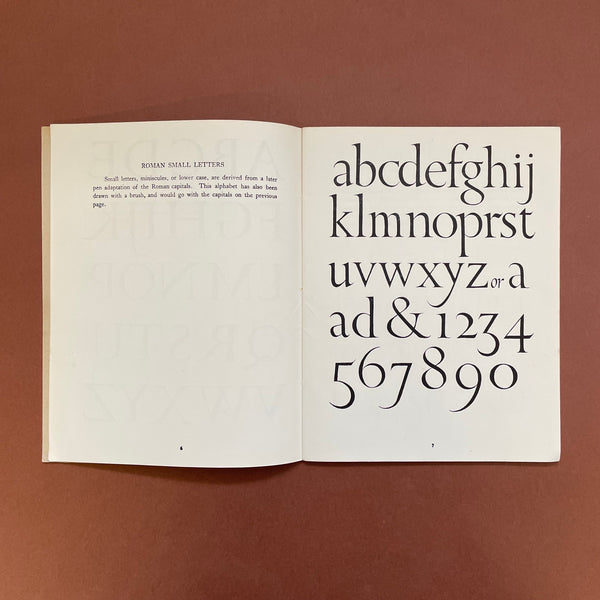 ROMAN SMALL LETTERS
Small letters, miniscules, or lower case, are derived from a later
pen adaptation of the Roman capitals. This alphabet has also been
drawn with a brush, and would go with the capitals on the previous
page.
6
abcdefghij
klmnoprst
uvwxyz or a
ad & 1234
567890
7